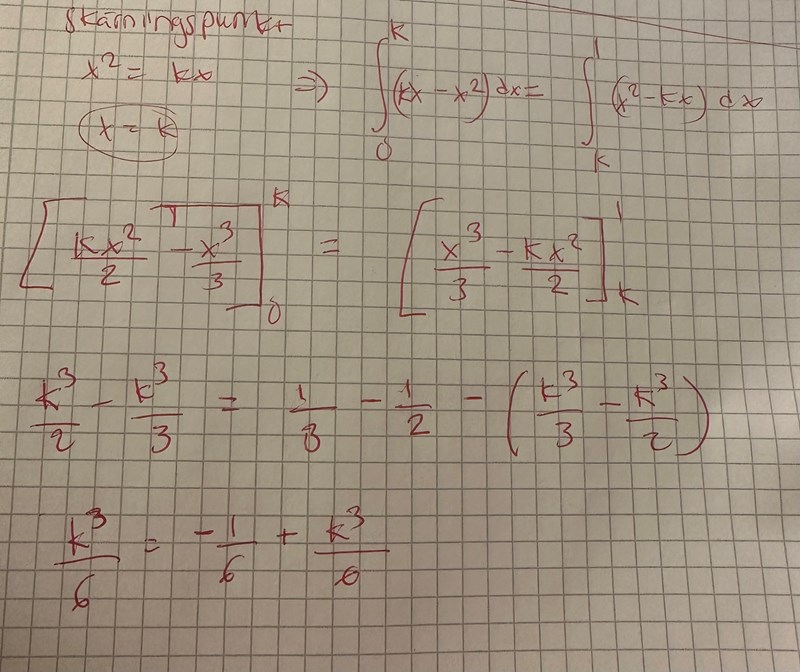 Skärningspunkt
x² = kx ⇒ ∫₀ᵏ (kx - x²) dx = ∫ₖ¹ (x² - kx) dx
x = k
[kx²/2 - x³/3]₀ᵏ = [x³/3 - kx²/2]ₖ¹
k³/2 - k³/3 = 1/3 - 1/2 - (k³/3 - k³/2)
k³/6 = -1/6 + k³/6